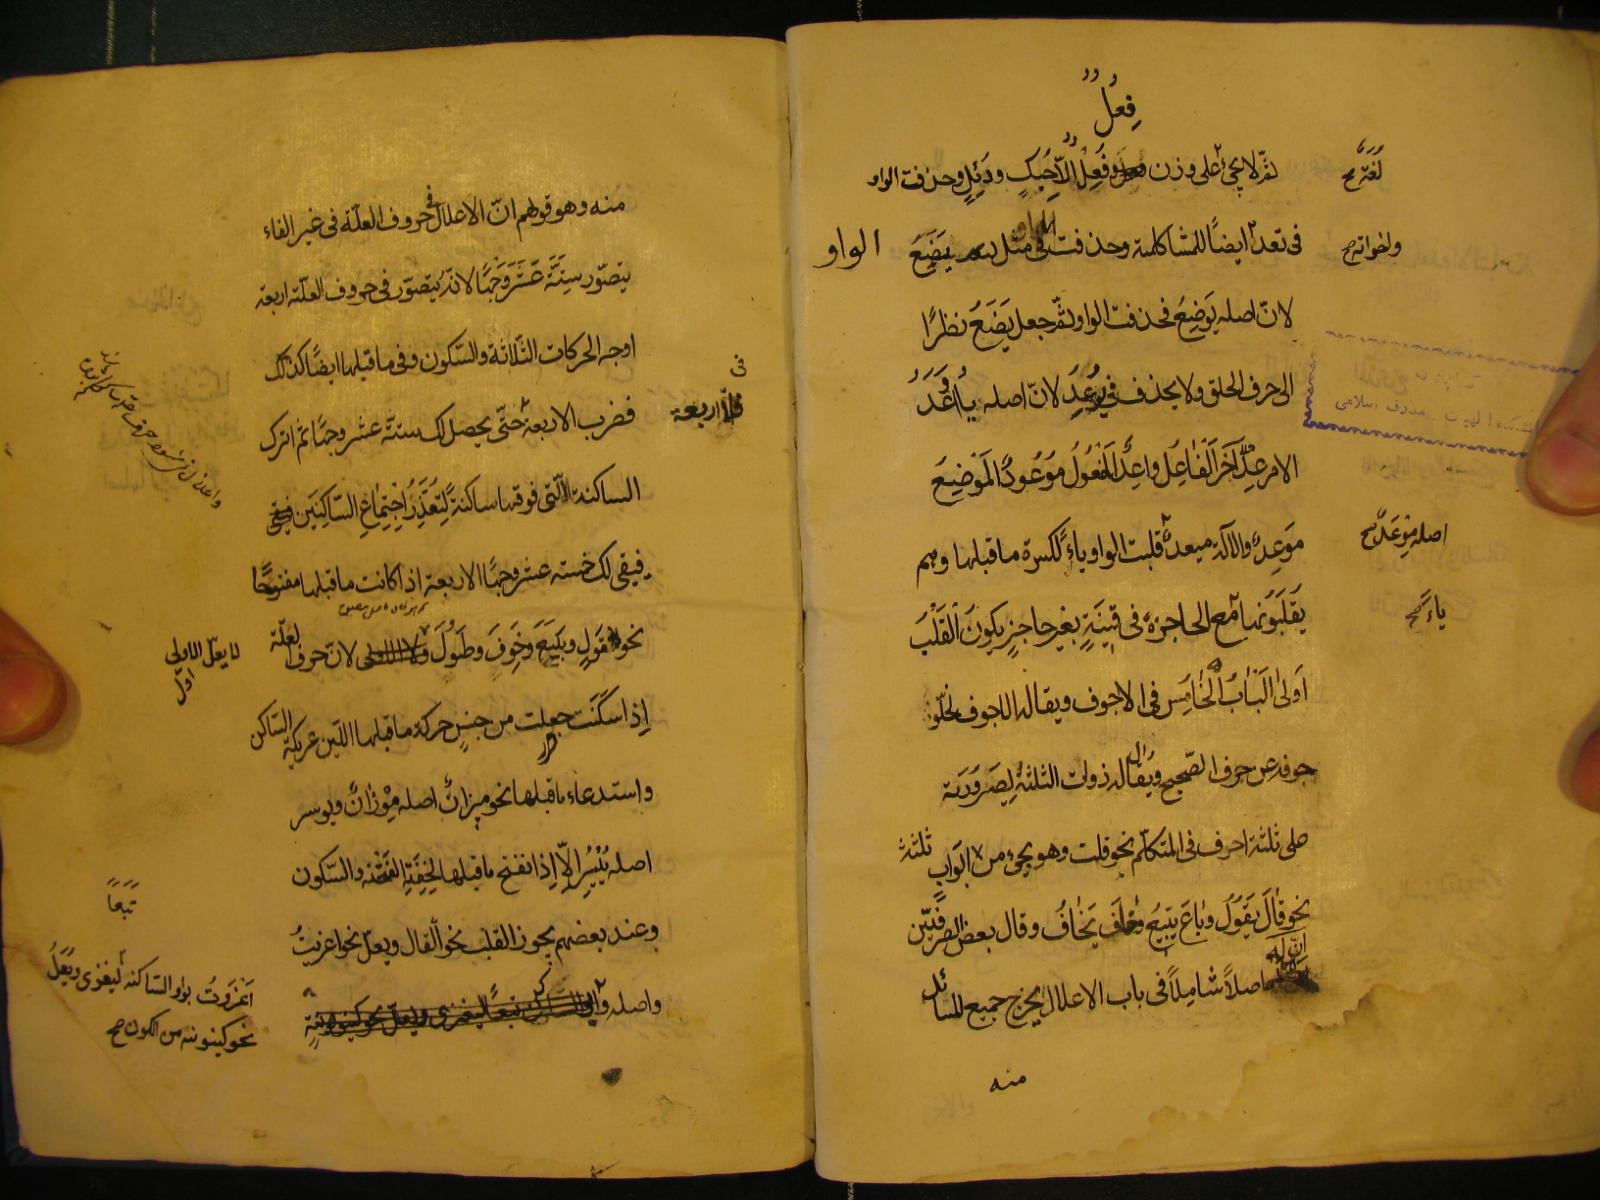 فِعُلُ
لغة صح
ثمّ لا يجئ على وزن وفعل الّا حبك ودئل وحذفت الواو
واخواته صح
فى تعد ايضًا للمشاكلة وحذفت الواو فى مثل يَضَعَ
لانّ اصله يَوضِعُ فحذفت الواو ثمّ جعل يَضَعُ نظرًا
الى حرف الحلق ولا يحذف فى يُوعَد لانّ اصله
الامر عِدْ آخر الفاعل واعد المفعول موعود الموضع
مَوعِد والآلة ميعد قلبت الواو ياءً لكسرة ما قبلها وهم
اصله مِوْعَد صح
يقلبونها مع الحاجز فى قنية بغير حاجز يكون القلب
ياءً صح
اولى الباب الخامس فى الاجوف ويقال له الاجوف لخلوّ
جوفه عن حرف الصّحيح ويقال له ذوات الثلثة لصيرورته
على ثلثة احرف فى المتكلّم نحو قلت وهو يجئ من ثلثة ابواب
نحو قال يقول وباع يبيع وخاف يخاف وقال بعض الصرفيّين
انّ له
اصلًا شاملًا فى باب الاعلال يخرج جميع المسائل
منه
منه وهو قولهم انّ الاعلال فى حروف العلّة فى غير الفاء
يتصوّر ستّة عشر وجهًا لانّه يتصوّر فى حروف العلّة اربعة
اوجه الحركات الثّلاثة والسّكون وفى ما قبلها ايضًا كذلك
فى
فضرب الاربعة حتّى يحصل لك ستة عشر وجهًا ثم اترك
اربعة
الساكنة الّتى فوقها ساكنة لتعذّر اجتماع السّاكنين
فيبقى لك خمسة عشر وجهًا الاربعة اذا كانت ما قبلها مفتوحًا
نحو قول وبيع وخوف وطول لانّ حرف العلّة
لا يعلّ الاولى
اذا سكنت جعلت من جنس حركة ما قبلها اللين عريكة السّاكن
واستدعاء ما قبلها نحو ميزان اصله مِوْزان ويوسر
اصله يُيْسِر الّا اذا انفتح ما قبلها لخفّة الفتحة والسّكون
وعند بعضهم يجوز القلب نحو القال ويعلّ نحو اغزيت
تبعًا
واصله
اغزوت بواو السّاكنة ليغزى ويعلّ
نحو كينونة من الكون صح